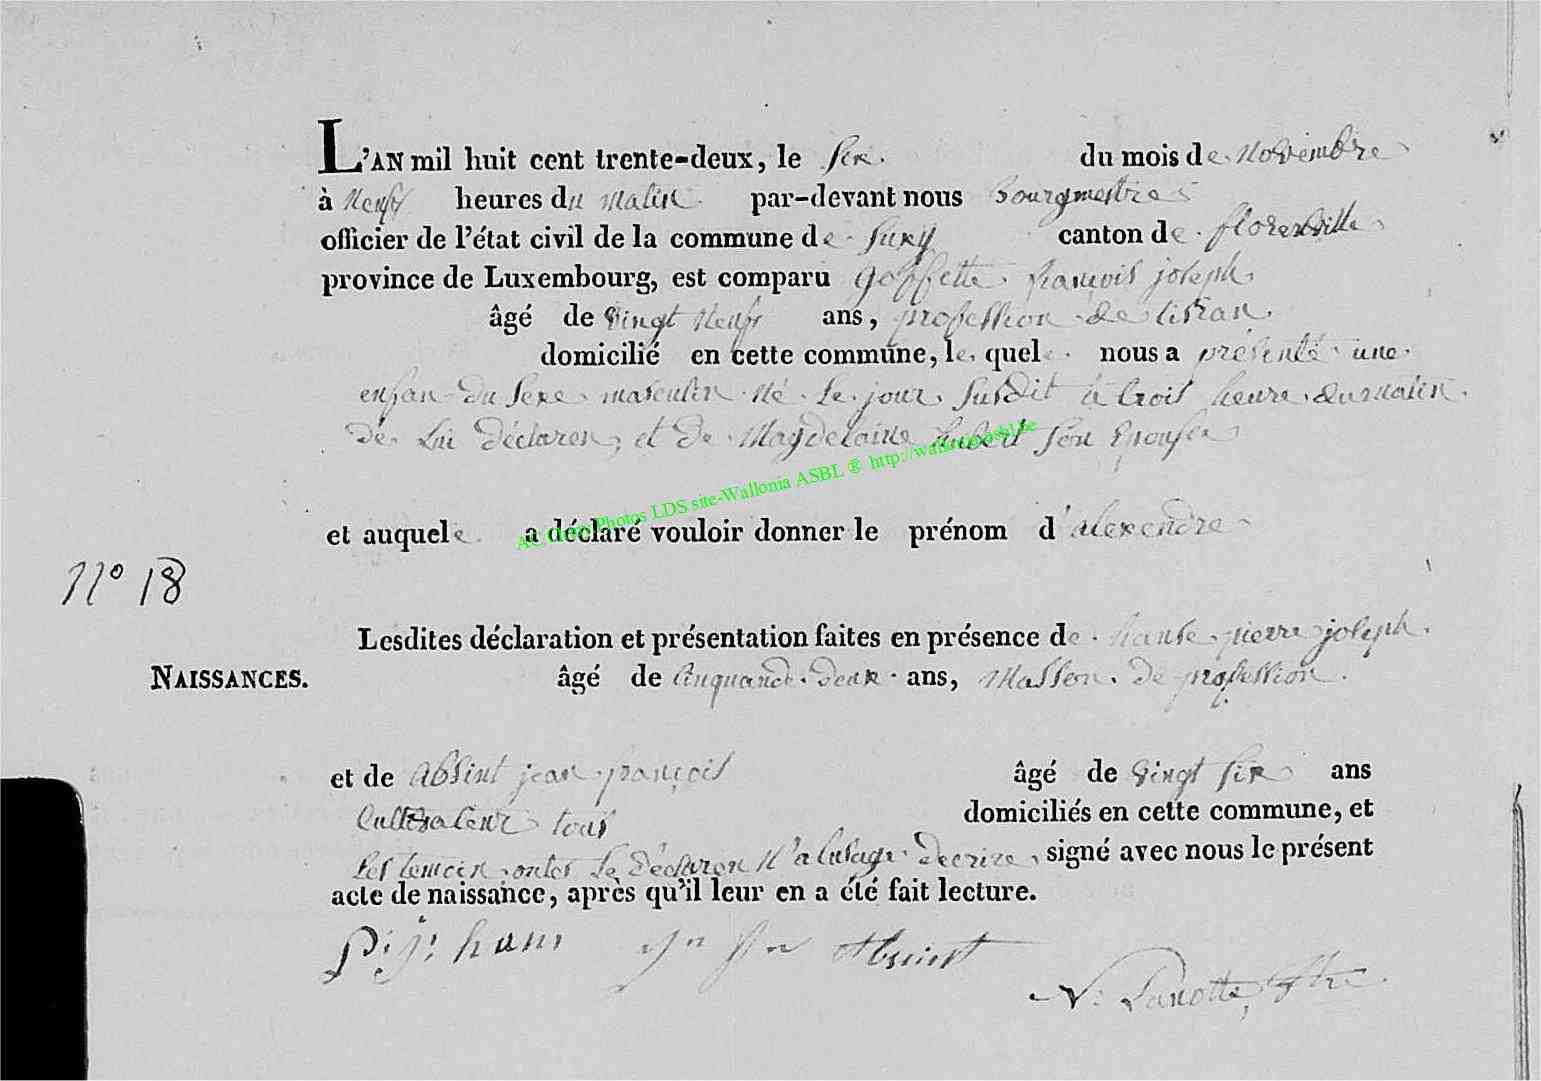 L'AN mil huit cent trente-deux, le six du mois de novembre
à neufs heures du matin par-devant nous bourgmestre
officier de l'état civil de la commune de Suxy canton de florenville
province de Luxembourg, est comparu goffette françois joseph
âgé de vingt neufs ans, profession de tisran
domicilié en cette commune, le quel nous a présenté une
enfan du sexe masculin né le jour susdit à trois heure du matin
de lui déclaren, et de Magdelaine hubert son Epouse
AC Clerx Photos LDS site-Wallonia ASBL ® http://wallonia-asbl.be
et auquel a déclaré vouloir donner le prénom d'alexendre
N° 18
Lesdites déclaration et présentation faites en présence de hanse pierre joseph
NAISSANCES.
âgé de cinquande deux ans, Masson de profession
et de absint jean françois âgé de vingt six ans
Cultivateur tous domiciliés en cette commune, et
les temoin le déclaren n'a lusage decrire signé avec nous le présent
acte de naissance, après qu'il leur en a été fait lecture.
P. j. hans jn fr Absint
N. Panotte,